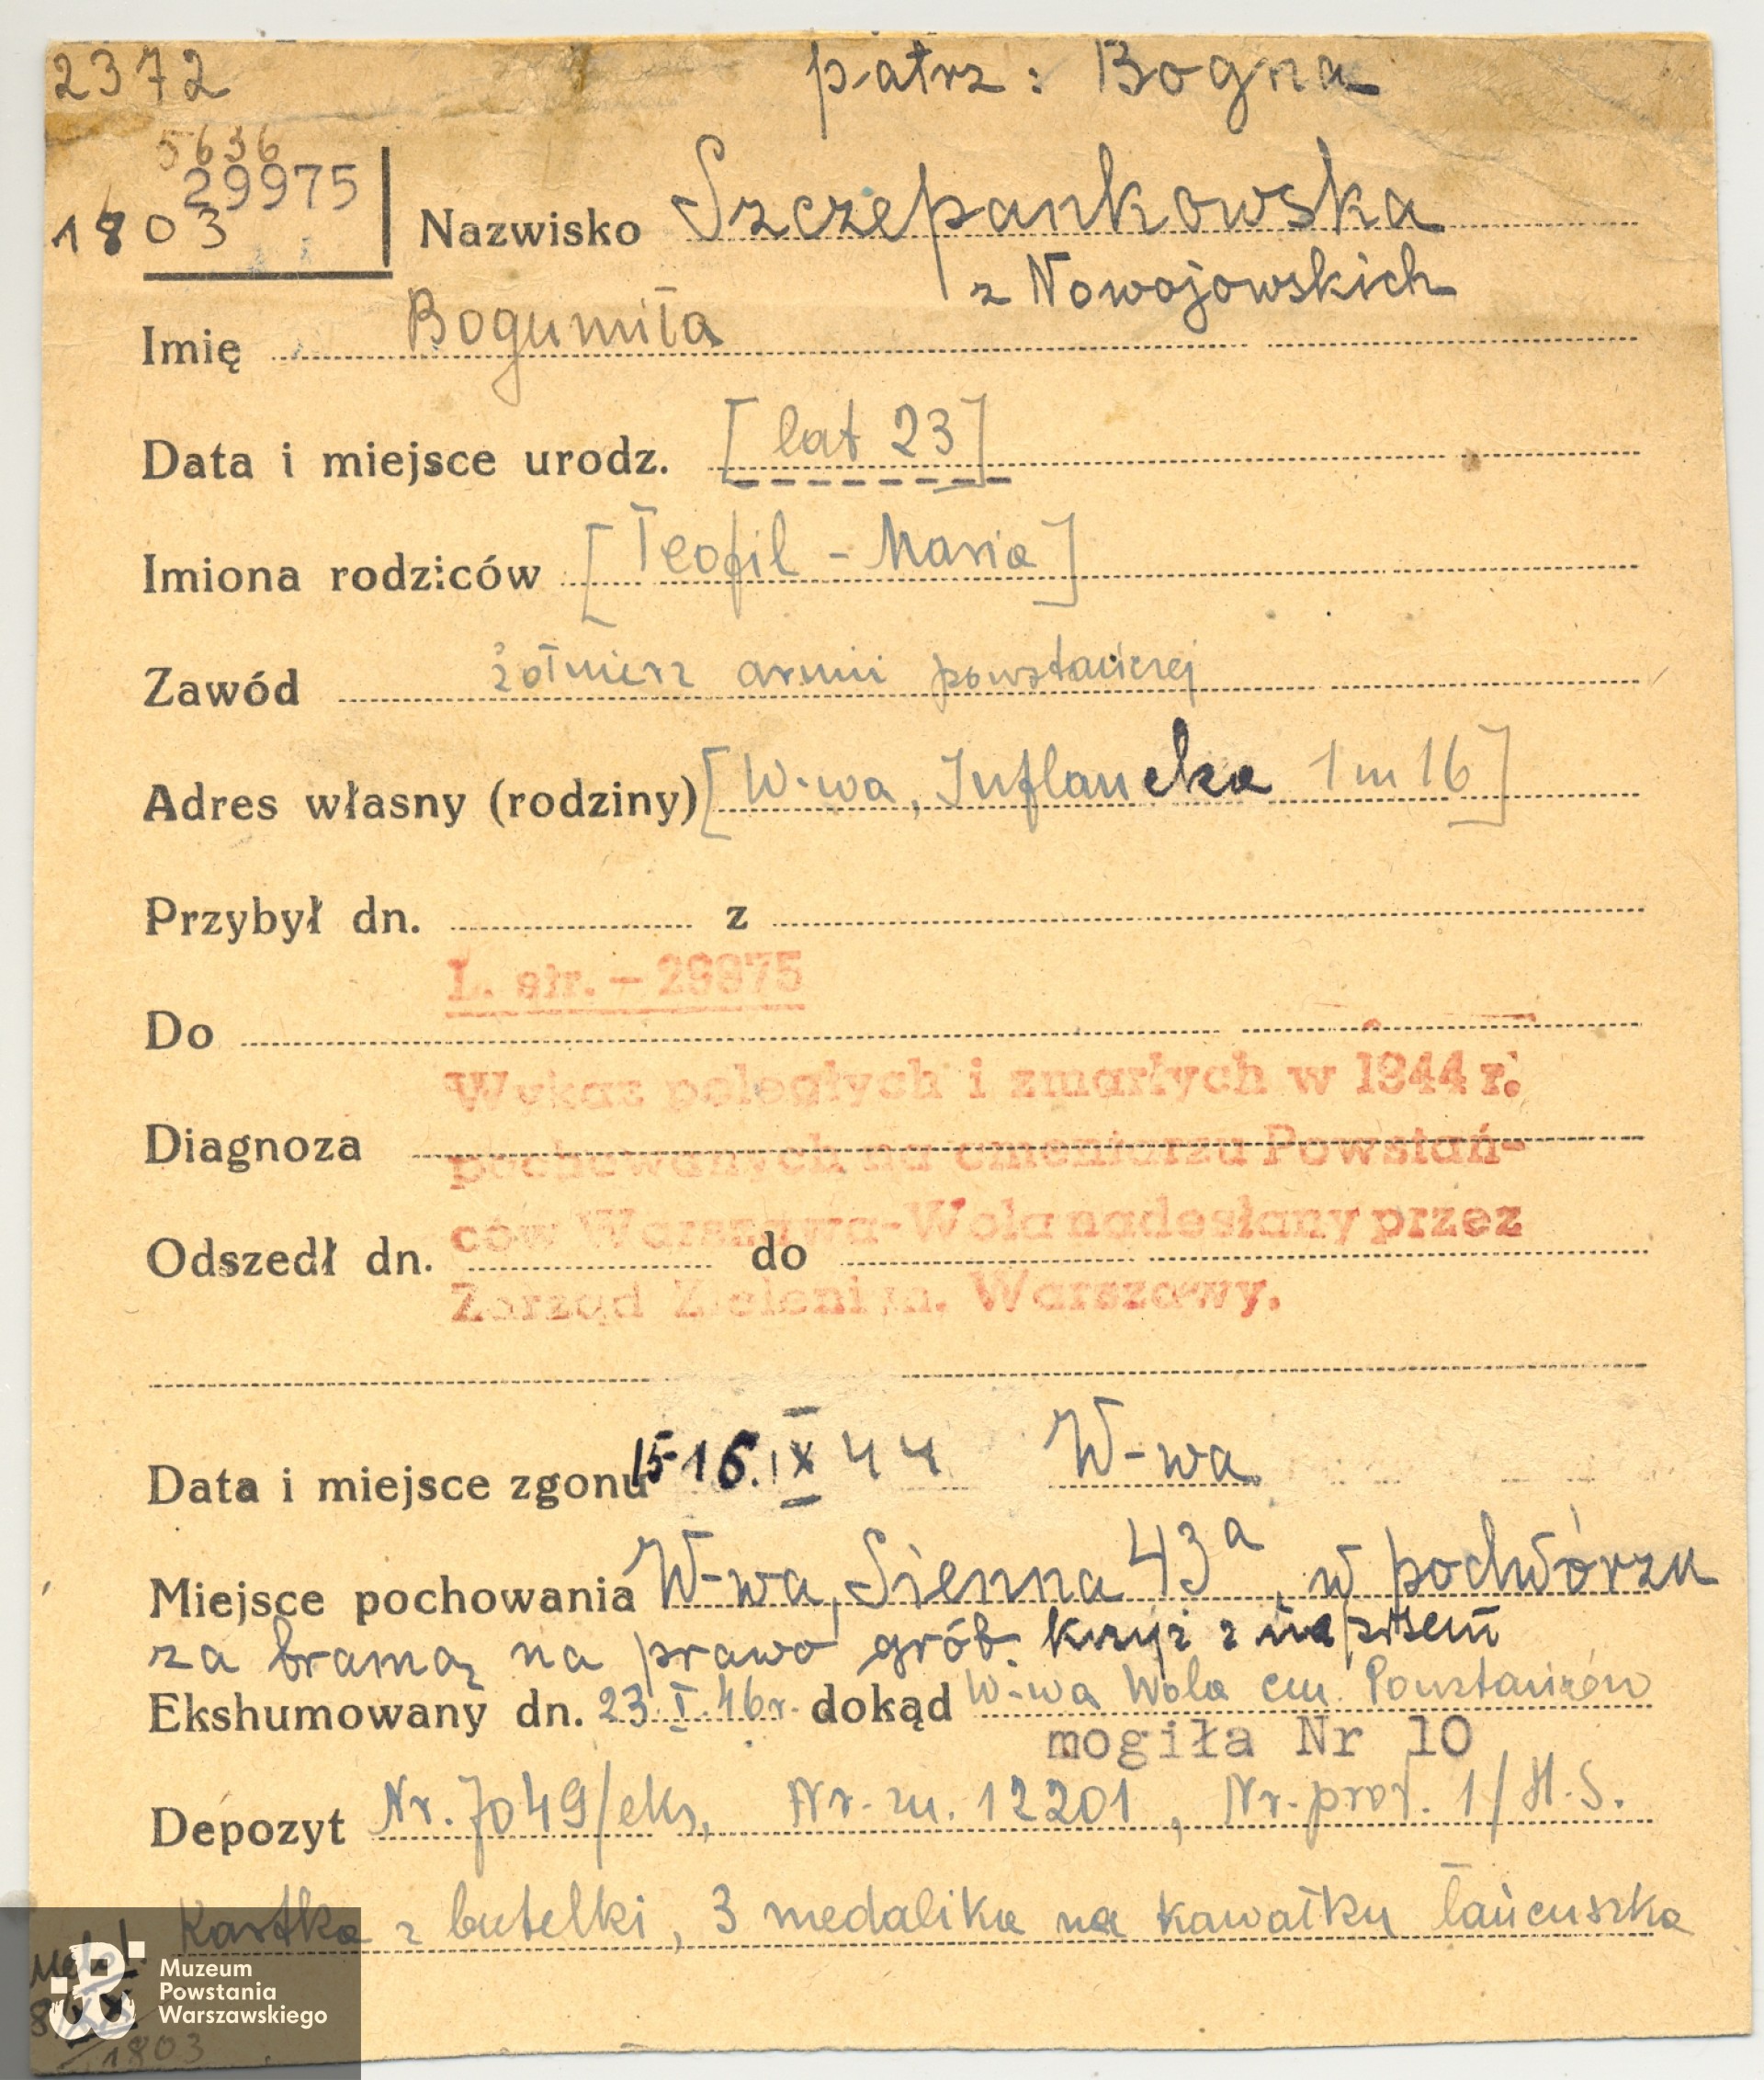 2372
patrz: Bogna
5636
29975
1803
Nazwisko Szczepankowska
z Nowojowskich
Imię Bogumiła
Data i miejsce urodz. [lat 23]
Imiona rodziców [Teofil - Maria]
Zawód żołnierz armii powstańczej
Adres własny (rodziny) [W-wa, Inflancka 1 m 16]
Przybył dn. z
L. str. - 29975
Do
Wykaz poległych i zmarłych w 1944 r.
Diagnoza
pochowanych na cmentarzu Powstań-
ców Warszawa-Wola nadesłany przez
Odszedł dn. do
Zarząd Zieleni m. Warszawy.
Data i miejsce zgonu 15-16.IX 44 W-wa
Miejsce pochowania W-wa, Sienna 43a, w podwórzu
za bramą na prawo grób. krzyż z napisem
Ekshumowany dn. 23.I.46r. dokąd W-wa Wola cm. Powstańców
mogiła Nr 10
Depozyt Nr. 7049/eks, Nr. zu. 12201, Nr. prot. 1/H.S.
Kartka z butelki, 3 medalika na kawałku łańcuszka
Muzeum
Powstania
Warszawskiego
1803